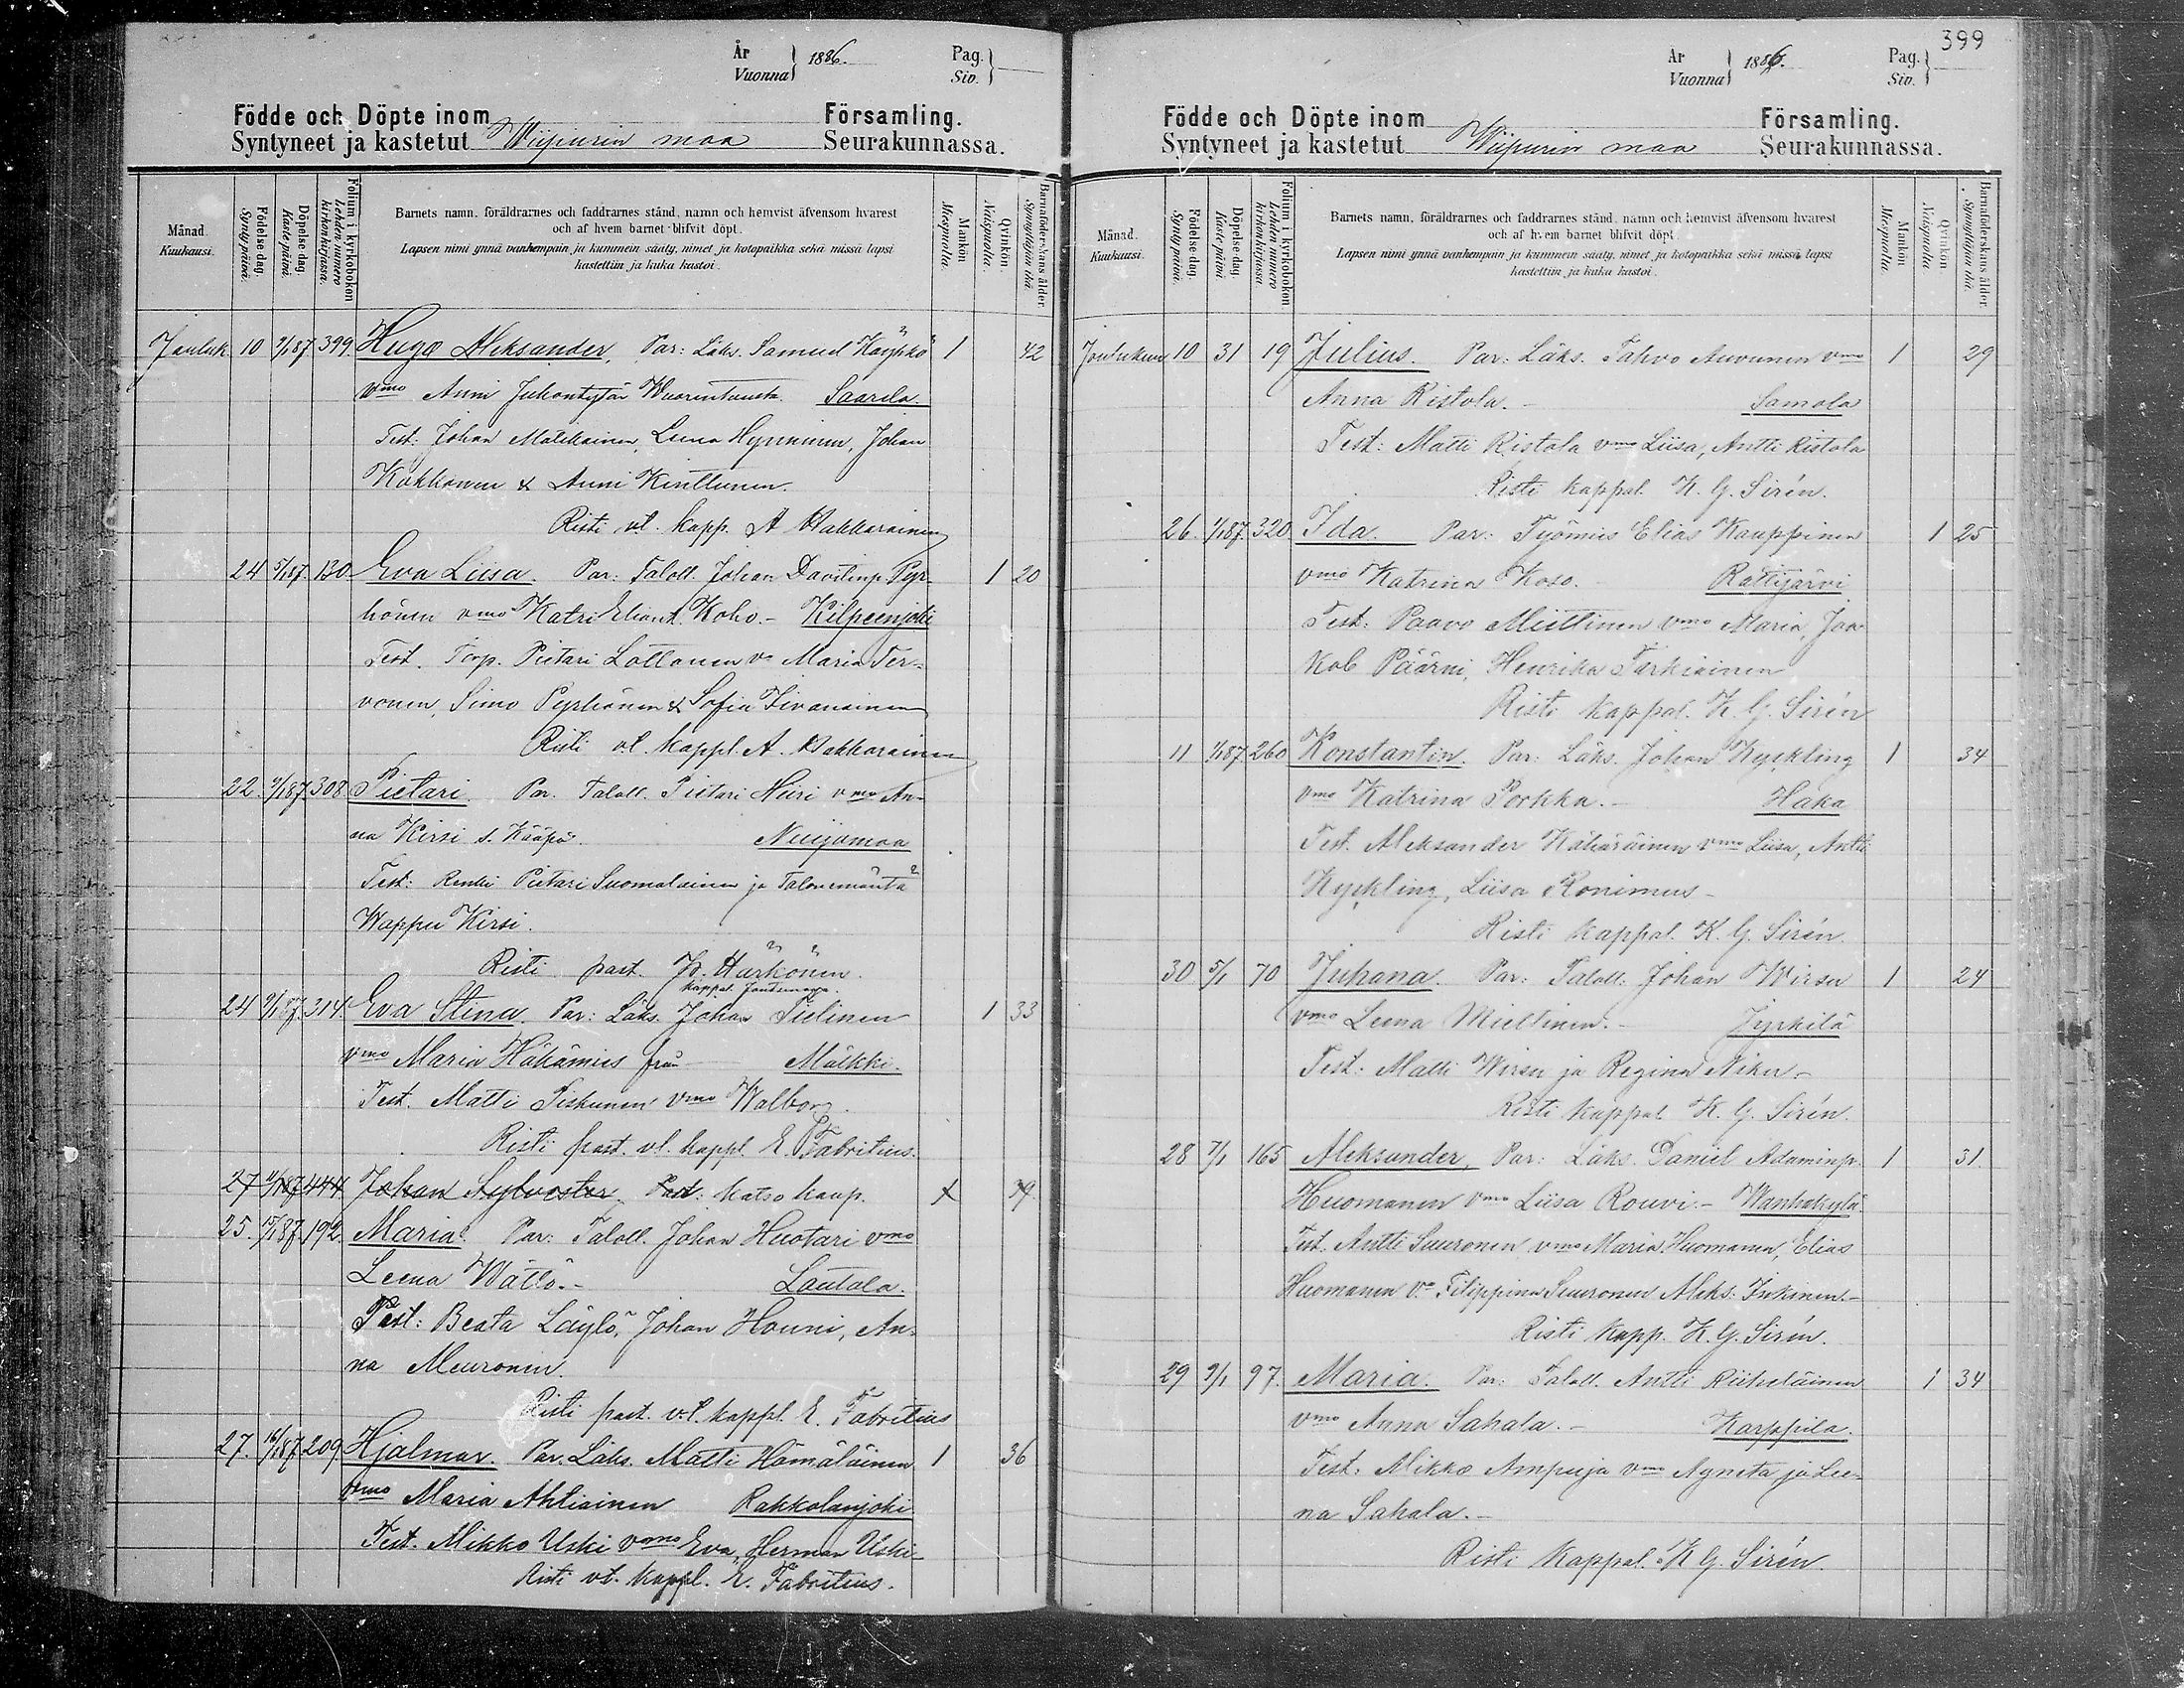 År
Vuonna } 1886.
Pag.
Siv. }
Födde och Döpte inom Församling.
Syntyneet ja kastetut Wiipurin maa Seurakunnassa.
Månad.
Kuukausi.
Födelse-dag.
Syntypäivä.
Döpelse-dag.
Kastepäivä.
Folium i kyrkobokon
Lehden numero
kirkonkirjassa.
Barnets namn, föräldrarnes och faddrarnes stånd, namn och hemvist äfvensom hvarest
och af hvem barnet blifvit döpt.
Lapsen nimi ynnä vanhempain ja kummein sääty, nimet ja kotopaikka sekä missä lapsi
kastettiin ja kuka kastoi.
Mankön.
Miespuolta.
Qvinkön.
Naispuolta.
Barnaföderskans ålder.
Synnyttäjän ikä.
Jouluk. 10 2/1 87. 399. Hugo Aleksander. Par: Läks. Samuel Käyhkö 1 42
vmo Anni Juhontytär Saarela.
Test: Johan Mälkäinen, Leena Hyvninen, Johan
Kokkonen & Anni Kinttunen.
Risti vt. kapp. A Hakkarainen
24 5/1 87. 130 Eva Liisa. Par: Taloll. Johan Davidinp. Pyr- 1 20
hönen vmo Katri Eliant. Koho.- Kilpeenjoki
Test. Torp. Pietari Lottonen vo Maria Ter-
vonen, Simo Pyrhönen & Sofia Iivanainen
Risti vt. kappl. A. Hakkarainen
22. 9/1 87. 308 Pietari. Par. Taloll. Pietari Hiiri vmo An-
na Kirsi s. Kääpä. Nuijamaa
Test: Renki Pietari Suomalainen ja Talonemäntä
Wappu Kirsi.
Risti past. Härkönen.
kappal.
24 9/1 87. 314. Eva Stina. Par: Läks. Johan Tielinen 1 33
vmo Maria Häkämies från Mälkki.
Test. Matti Tiskunen vmo Walborg.
Risti past. vt. kappl. E. Fabritius.
27 444 Johan Sylvester. Par: Katso kaup. 39
25. 15/1 87. 192. Maria. Par: Taloll. Johan Huotari vmo
Leena Wättö.- Lautala.
Test: Beata Läylö, Johan Houni, An-
na Meuronen.
Risti past. v.t. kappl. E. Fabritius
27. 16/1 87. 209 Hjalmar. Par. Läks. Matti Hämäläinen 1 36
vmo Maria Ahtiainen Rakkolanjoki
Test. Mikko Uski vmo Eva, Herman Uski-
Risti vt. kappl. E. Fabritius.
399
År
Vuonna } 1886.
Pag.
Siv. }
Födde och Döpte inom Församling.
Syntyneet ja kastetut Wiipurin maa Seurakunnassa.
Månad.
Kuukausi.
Födelse-dag.
Syntypäivä.
Döpelse-dag.
Kastepäivä.
Folium i kyrkobokon.
Lehden numero
kirkonkirjassa
Barnets namn, föräldrarnes och faddrarnes stånd, namn och hemvist äfvensom hvarest
och af hvem barnet blifvit döpt.
Lapsen nimi ynnä vanhempain ja kummein sääty, nimet ja kotopaikka sekä missä lapsi
kastettiin ja kuka kastoi.
Mankön
Miespuolta.
Qvinkön
Naispuolta
Barnaföderskans ålder
Synnyttäjän ikä.
Joulukuun 10 31 19 Julius. Par: Läks. Tahvo Auvunen vmo 1 29
Anna Ristola.- Samola
Test: Matti Ristola vmo Liisa, Antti Ristola
Risti kappal. K. G. Sirén.
26. 1/1 87. 320. Ida. Par: Työmies Elias Kauppinen 1 25
vmo Katrina Koso. Rättijärvi
Test: Paavo Miettinen vmo Maria, Jaa-
kob Päärni, Henrika Tarkiainen
Risti kappal. K. G. Sirén
11 1/1 87 260 Konstantin. Par: Läks. Johan Kyckling 1 34
vmo Katrina Porkka.- Haka
Test. Aleksander Kähäräinen vmo Liisa, Antti
Kyckling, Liisa Ronimus-
Risti kappal. K. G. Sirén.
30 5/1 70 Juhana. Par: Taloll. Johan Wirsu 1 24
vmo Leena Miettinen.- Jyrkilä
Test: Matti Wirsu ja Regina Niku.-
Risti kappal K. G. Sirén.
28 7/1 165 Aleksander. Par: Läks. Daniel Adaminp. 1 31.
Huomanen vmo Liisa Rouvi.- Wanhakylä
Test. Antti Suuronen vmo Maria Huomanen, Elias
Huomanen vo Filippina Suuronen Aleks. Inkinen.-
Risti kapp. K. G. Sirén.
29 9/1 97. Maria. Par: Taloll. Antti Riiheläinen 1 34
vmo Anna Sakala.- Karppila.
Test: Mikko Ampuja vmo Agneta ja Lee-
na Sakala.-
Risti kappal. K G. Sirén.